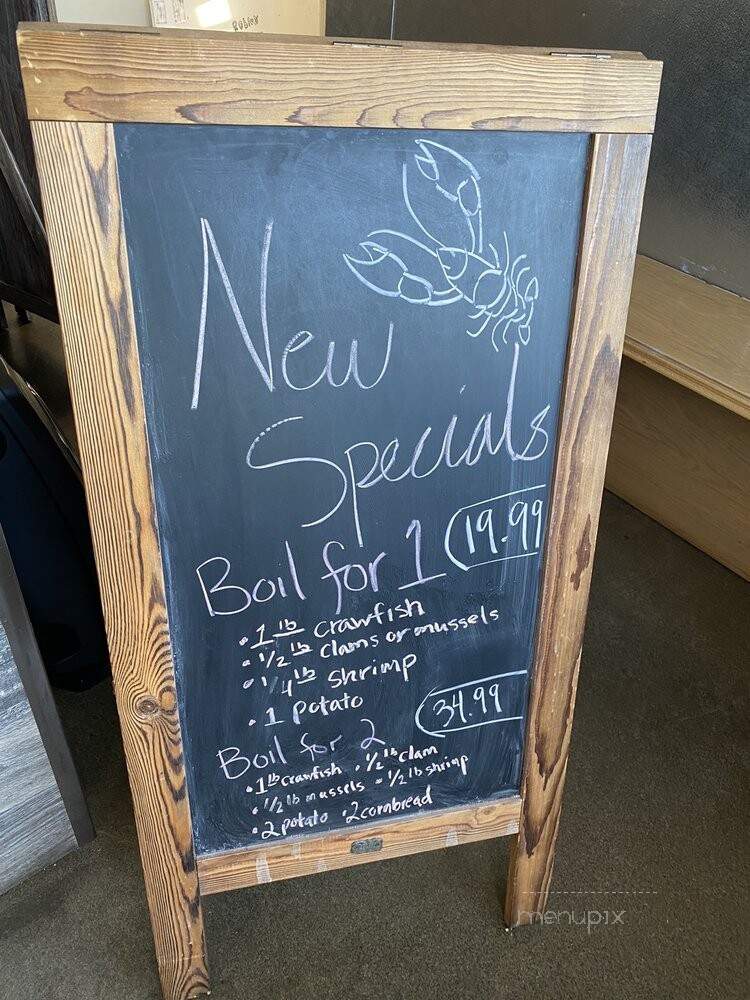 New
Specials
Boil for 1 19.99
• 1 lb crawfish
• 1/2 lb clams or mussels
• 1/4 lb shrimp
• 1 potato
Boil for 2 34.99
• 1 lb crawfish • 1/2 lb clam
• 1/2 lb mussels • 1/2 lb shrimp
• 2 potato • 2 cornbread
menupix